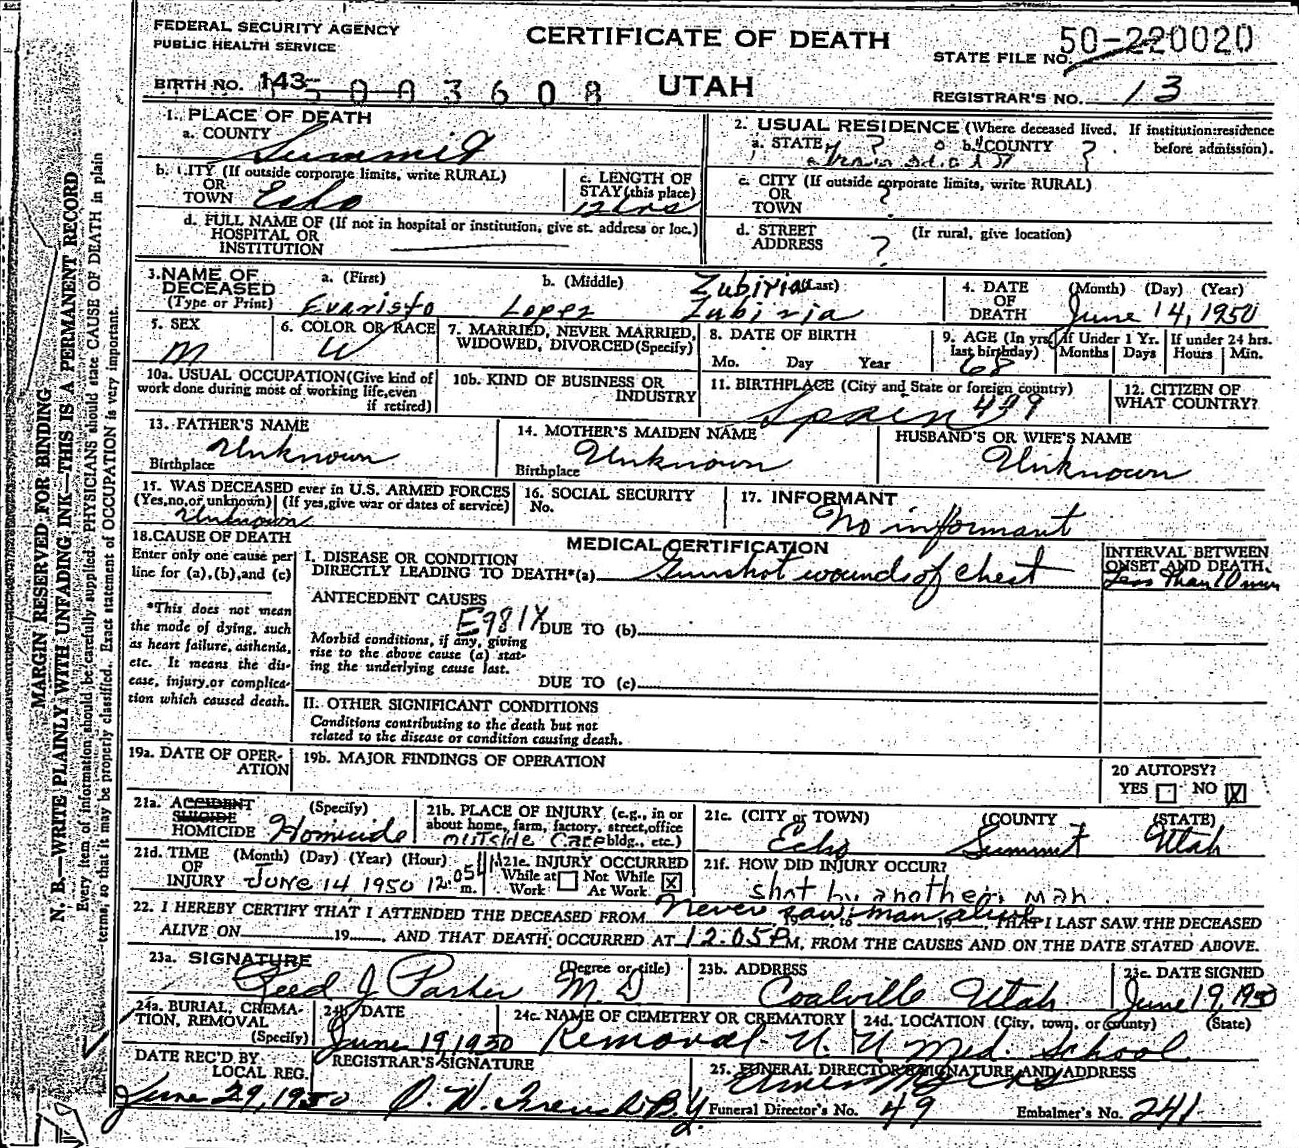 FEDERAL SECURITY AGENCY
PUBLIC HEALTH SERVICE
CERTIFICATE OF DEATH
STATE FILE NO. 50-220020
BIRTH NO. 143
5003608
UTAH
REGISTRAR'S NO. 13
1. PLACE OF DEATH
a. COUNTY Summit
b. CITY (If outside corporate limits, write RURAL)
OR
TOWN Echo
c. LENGTH OF
STAY (this place)
12 hrs
d. FULL NAME OF (If not in hospital or institution, give st. address or loc.)
HOSPITAL OR
INSTITUTION
2. USUAL RESIDENCE (Where deceased lived. If institution:residence
before admission).
a. STATE ? b. COUNTY ?
c. CITY (If outside corporate limits, write RURAL)
OR
TOWN ?
d. STREET (Ir rural, give location)
ADDRESS ?
3. NAME OF DECEASED
(Type or Print)
a. (First) b. (Middle) (Last)
Zubiria
Evaristo Lopez Zubiria
4. DATE OF DEATH (Month) (Day) (Year)
June 14, 1950
5. SEX
M
6. COLOR OR RACE
W
7. MARRIED, NEVER MARRIED,
WIDOWED, DIVORCED (Specify)
8. DATE OF BIRTH
Mo. Day Year
9. AGE (In yrs. last birthday)
68
If Under 1 Yr.
Months Days
If under 24 hrs.
Hours Min.
10a. USUAL OCCUPATION (Give kind of
work done during most of working life, even
if retired)
10b. KIND OF BUSINESS OR
INDUSTRY
11. BIRTHPLACE (City and State or foreign country)
Spain 499
12. CITIZEN OF
WHAT COUNTRY?
13. FATHER'S NAME
Unknown
Birthplace
14. MOTHER'S MAIDEN NAME
Unknown
Birthplace
HUSBAND'S OR WIFE'S NAME
Unknown
15. WAS DECEASED ever in U.S. ARMED FORCES
(Yes, no, or unknown) (If yes, give war or dates of service)
Unknown
16. SOCIAL SECURITY
No.
17. INFORMANT
No informant
18. CAUSE OF DEATH
Enter only one cause per
line for (a), (b), and (c)
*This does not mean
the mode of dying, such
as heart failure, asthenia,
etc. It means the dis-
ease, injury, or complica-
tion which caused death.
MEDICAL CERTIFICATION
I. DISEASE OR CONDITION
DIRECTLY LEADING TO DEATH*(a) Gunshot wounds of chest
INTERVAL BETWEEN
ONSET AND DEATH
Less than 10 min
ANTECEDENT CAUSES
E981X DUE TO (b)
Morbid conditions, if any, giving
rise to the above cause (a) stat-
ing the underlying cause last.
DUE TO (c)
II. OTHER SIGNIFICANT CONDITIONS
Conditions contributing to the death but not
related to the disease or condition causing death.
19a. DATE OF OPER-
ATION
19b. MAJOR FINDINGS OF OPERATION
20 AUTOPSY?
YES NO X
21a. ACCIDENT
SUICIDE
HOMICIDE
(Specify)
Homicide
21b. PLACE OF INJURY (e.g., in or
about home, farm, factory, street, office
bldg., etc.)
outside Cafe
21c. (CITY or TOWN) (COUNTY) (STATE)
Echo Summit Utah
21d. TIME OF INJURY (Month) (Day) (Year) (Hour)
June 14 1950 12:05 m.
21e. INJURY OCCURRED
While at Work Not While At Work X
21f. HOW DID INJURY OCCUR?
shot by another man
22. I HEREBY CERTIFY THAT I ATTENDED THE DECEASED FROM Never saw man alive, to 19, THAT I LAST SAW THE DECEASED
ALIVE ON 19, AND THAT DEATH OCCURRED AT 12:05 P M, FROM THE CAUSES AND ON THE DATE STATED ABOVE.
23a. SIGNATURE (Degree or title)
Reed J Parker M.D
23b. ADDRESS
Coalville Utah
23c. DATE SIGNED
June 19, 1950
24a. BURIAL, CREMA-
TION, REMOVAL
(Specify)
24b. DATE
June 19, 1950
24c. NAME OF CEMETERY OR CREMATORY
24d. LOCATION (City, town, or county) (State)
Removal - U. U Med. School
DATE REC'D BY
LOCAL REG.
June 29, 1950
REGISTRAR'S SIGNATURE
25. FUNERAL DIRECTOR'S SIGNATURE AND ADDRESS
Funeral Director's No. 49 Embalmer's No. 241
MARGIN RESERVED FOR BINDING
N. B.—WRITE PLAINLY WITH UNFADING INK—THIS IS A PERMANENT RECORD
Every item of information should be carefully supplied. PHYSICIANS should state CAUSE OF DEATH in plain
terms, so that it may be properly classified. Exact statement of OCCUPATION is very important.